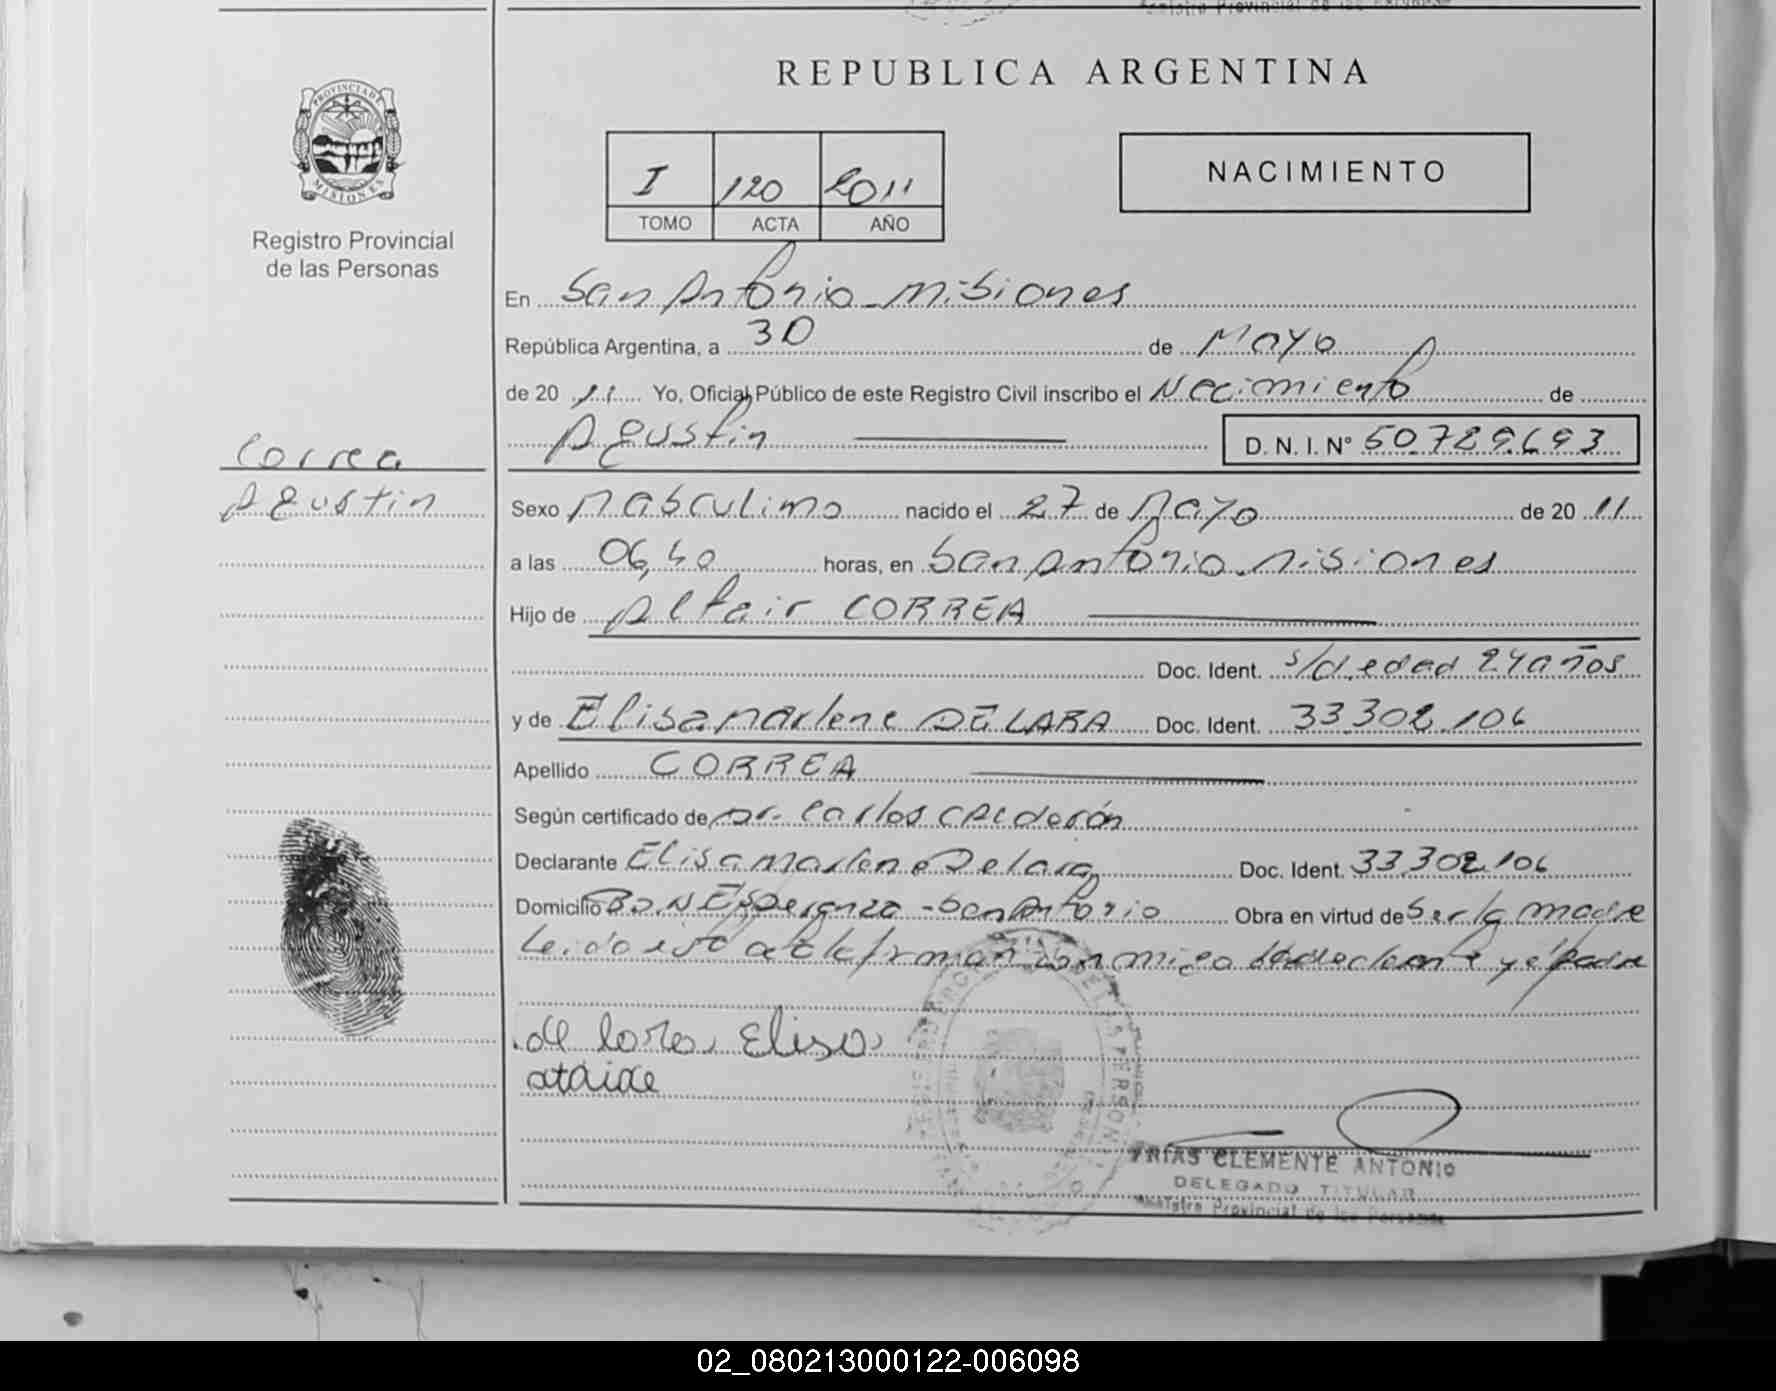 REPUBLICA ARGENTINA
PROVINCIA DE
MISIONES
Registro Provincial
de las Personas
I 120 2011
TOMO ACTA AÑO
NACIMIENTO
En San Antonio - Misiones
República Argentina, a 30 de Mayo
de 20 11 Yo, Oficial Público de este Registro Civil inscribo el Nacimiento de
Agustin D. N. I. N° 50.789.693
Correa
Agustin
Sexo Masculino nacido el 27 de Mayo de 20 11
a las 06,40 horas, en San Antonio - Misiones
Hijo de Altair CORREA
Doc. Ident. s/d. edad 24 años
y de Elisa Marlene DE LARA Doc. Ident. 33.302.106
Apellido CORREA
Según certificado de Dr. Carlos Calderón
Declarante Elisa Marlene De lara Doc. Ident. 33.302.106
Domicilio Bo. N Esperanza - San Antonio Obra en virtud de Ser la madre
Leido el firman con migo declarante y padre
de lara Elisa
FRIAS CLEMENTE ANTONIO
DELEGADO TITULAR
Registro Provincial de las Personas
02_080213000122-006098